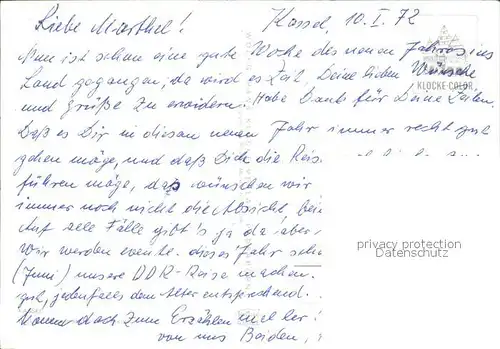 Kassel, 10. I. 72
Liebe Marthel!
Nun ist schon eine gute Woche des neuen Jahres ins
Land gegangen, da wird es Zeit, Deine lieben Wünsche
und Grüße zu erwidern. Habe Dank für Deine Zeilen.
KLOCKE-COLOR
Daß es Dir in diesem neuen Jahr immer recht gut
gehen möge, und daß Dich die
führen möge, das wünschen wir
immer noch nicht die Absicht,
Auf alle Fälle gibt's ja da
Wir werden evente. dieses Jahr
(Juni) unsere DDR-Reise machen.
gut, jedenfalls dem Alter entsprechend.
Komm doch zum Erzählen mal her!
von uns Beiden,
privacy protection
Datenschutz